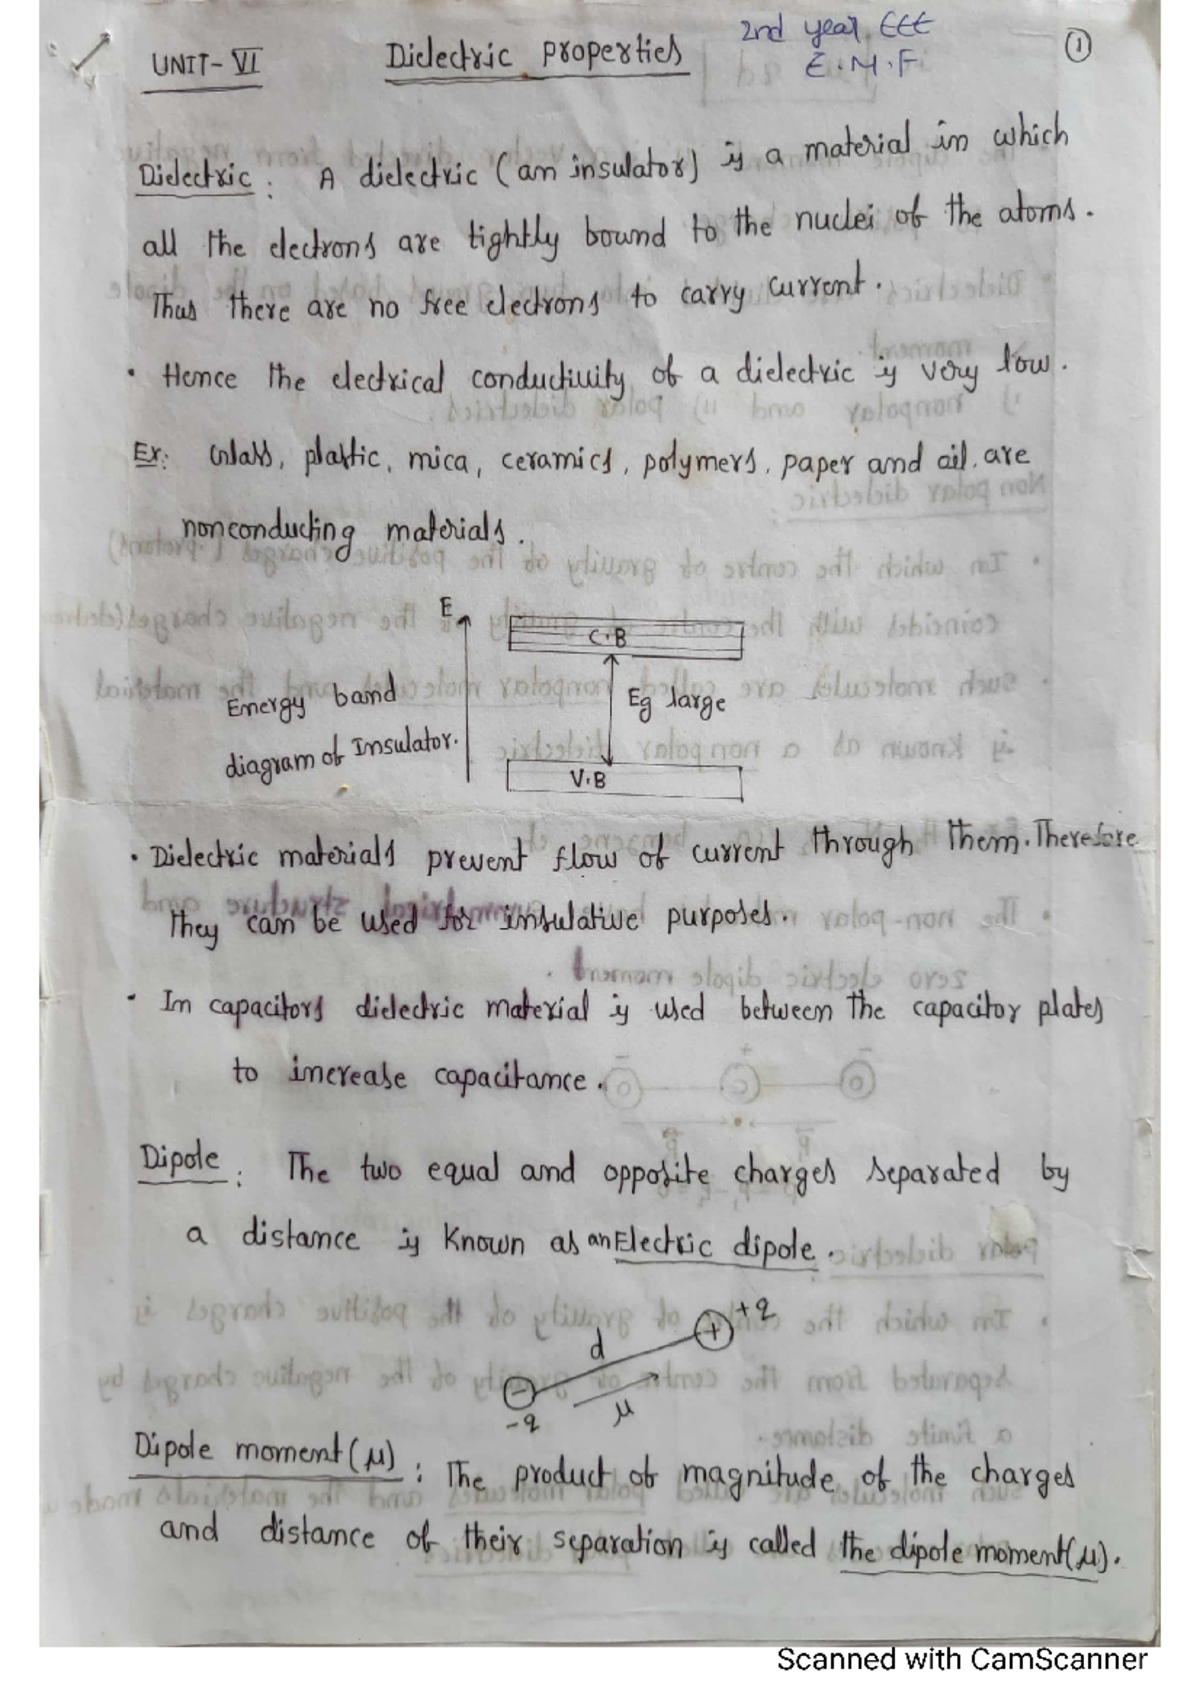 UNIT-VI Dielectric properties 2nd year EEE ①
E.M.F
Dielectric: A dielectric (an insulator) is a material in which
all the electrons are tightly bound to the nuclei of the atoms.
Thus there are no free electrons to carry current.
• Hence the electrical conductivity of a dielectric is very low.
Ex: Glass, plastic, mica, ceramics, polymers, paper and oil, are
nonconducting materials.
E
C.B
Energy band Eg large
diagram of Insulator.
V.B
• Dielectric materials prevent flow of current through them. Therefore
they can be used for insulative purposes.
• In capacitors dielectric material is used between the capacitor plates
to increase capacitance.
Dipole: The two equal and opposite charges separated by
a distance is known as an Electric dipole.
+q
+
d
-
μ
-q
Dipole moment (μ): The product of magnitude of the charges
and distance of their separation is called the dipole moment (μ).
Scanned with CamScanner